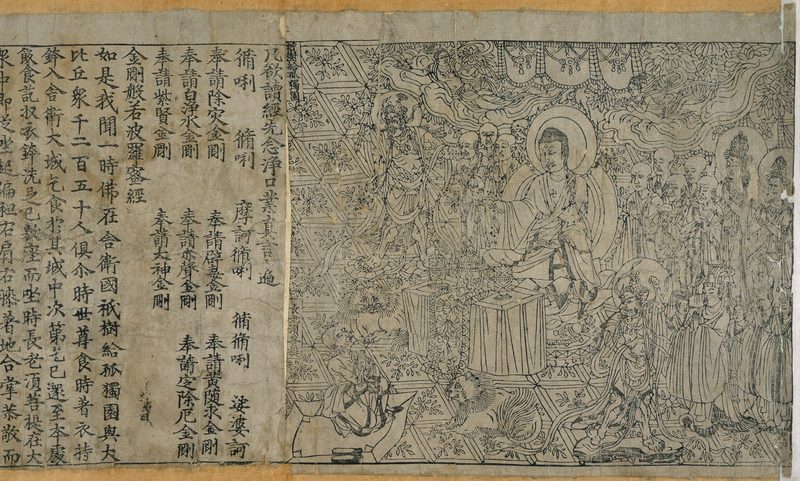 祇樹給孤獨園
長老須菩提
凡欲讀經先念淨口業真言一遍
脩唎 脩唎 摩訶脩唎 脩脩唎 娑婆訶
奉請除灾金剛 奉請辟毒金剛 奉請黃隨求金剛
奉請白淨水金剛 奉請赤聲金剛 奉請定除厄金剛
奉請紫賢金剛 奉請大神金剛
金剛般若波羅蜜經
如是我聞一時佛在舍衛國祇樹給孤獨園與大
比丘衆千二百五十人俱尒時世尊食時著衣持
鉢入舍衛大城乞食於其城中次第乞已還至本處
飯食訖収衣鉢洗足已敷座而坐時長老須菩提在大
衆中即從坐起偏袒右肩右膝著地合掌恭敬而